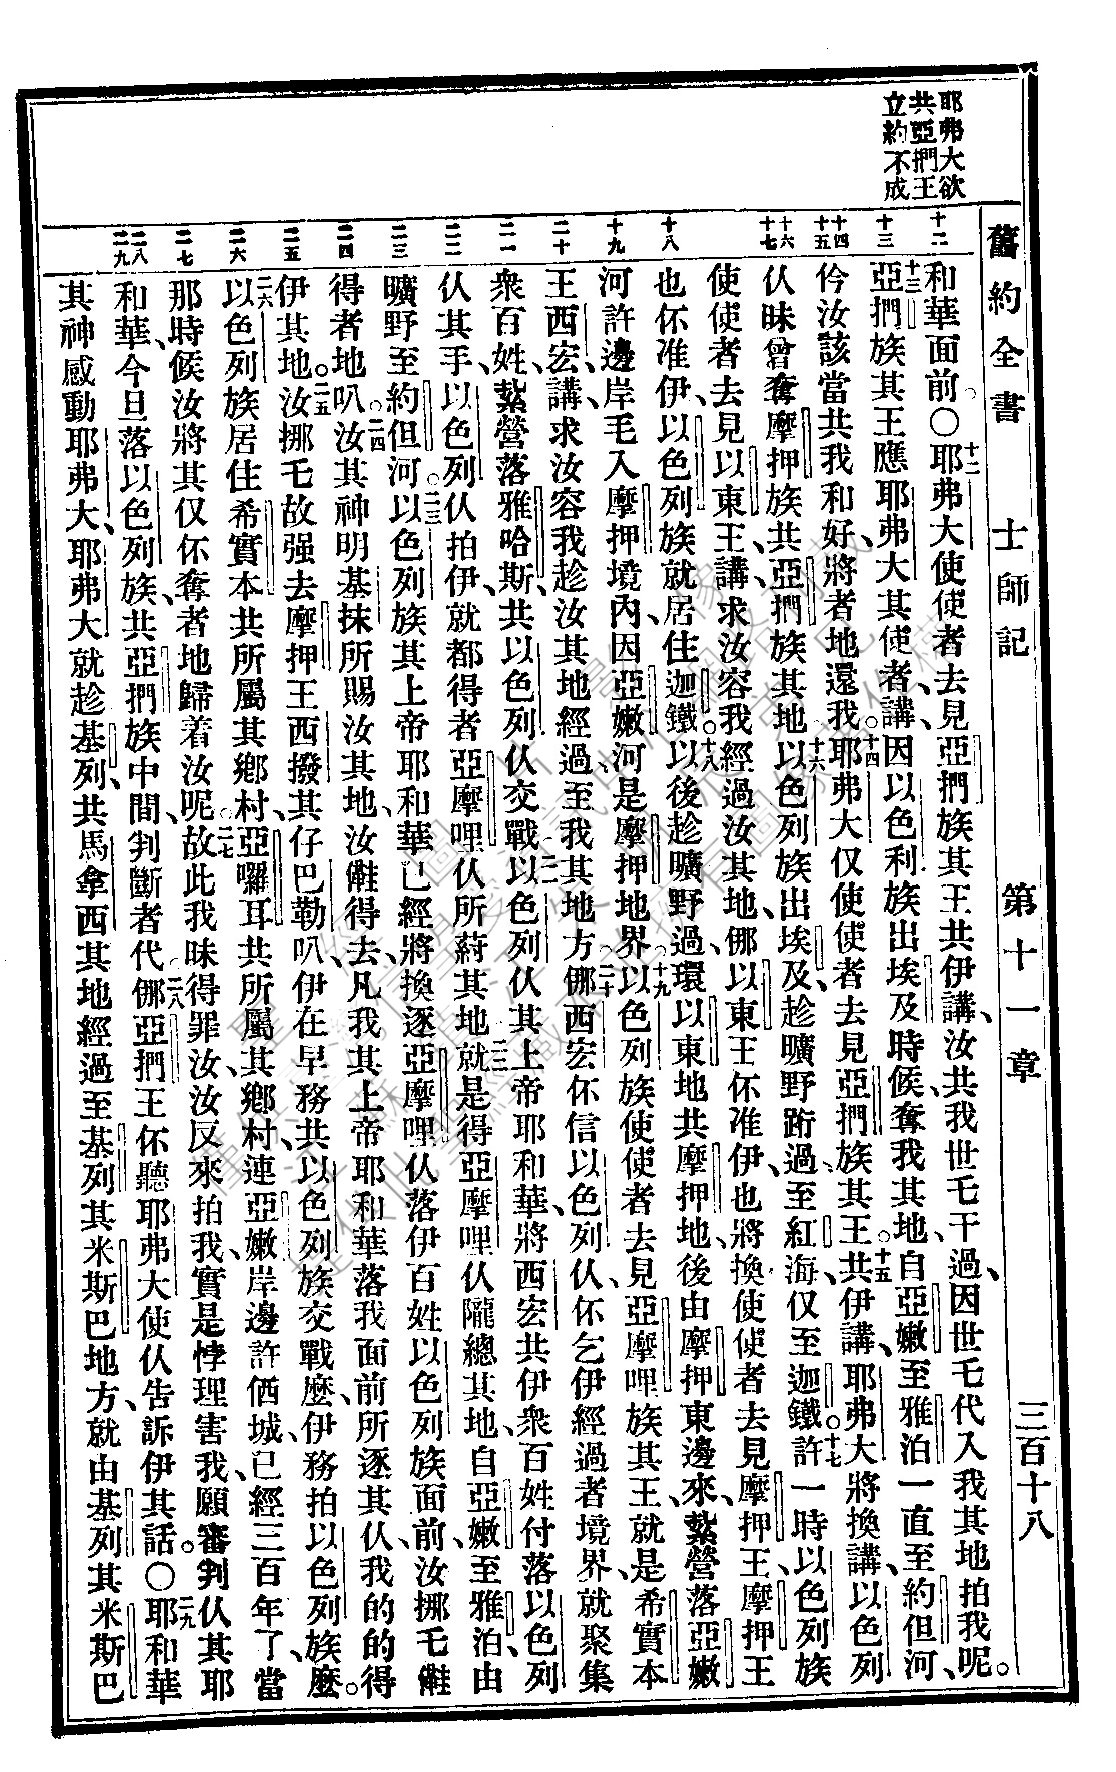 耶弗大欲
共亞捫王
立約不成
舊約全書 士師記 第十一章 三百十八
十二
十三
十四
十五
十六
十七
十八
十九
二十
二一
二二
二三
二四
二五
二六
二七
二八
二九
和華面前。〇十二耶弗大使使者去見亞捫族其王共伊講、汝共我世乇干過、因世乇代入我其地拍我呢。
十三亞捫族其王應耶弗大其使者、講、因以色利族出埃及時候、奪我其地、自亞嫩至雅泊一直至約但河、
伶汝該當共我和好、將者地還我。十四耶弗大仅使使者去見亞捫族其王。十五共伊講、耶弗大將換講、以色列
仈昧曾奪摩押族共亞捫族其地、十六以色列族出埃及、趁曠野跡過、至紅海、仅至迦鐵。十七許一時以色列族
使使者去見以東王、講、求汝容我經過汝其地、㑚以東王伓准伊、也將換使使者去見摩押王、摩押王
也伓准伊、以色列族就居住迦鐵。十八以後趁曠野過、環以東地共摩押地、後由摩押東邊來、紮營落亞嫩
河許邊岸、毛入摩押境內、因亞嫩河是摩押地界。十九以色列族使使者去見亞摩哩族其王、就是希實本
王西宏、講、求汝容我趁汝其地經過、至我其地方。二十㑚西宏伓信以色列仈、伓乞伊經過者境界、就聚集
衆百姓、紮營落雅哈斯、共以色列仈交戰。二一以色列仈其上帝耶和華、將西宏共伊衆百姓付落以色列
仈其手、以色列仈拍伊、就都得者亞摩哩仈所蔚其地、二二就是得亞摩哩仈隴總其地、自亞嫩至雅泊、由
曠野至約但河。二三以色列族其上帝耶和華已經將換逐亞摩哩仈落伊百姓以色列族面前、汝挪乇雝
得者地叭。二四汝其神明基抹所賜汝其地、汝雝得去、凡我其上帝耶和華落我面前所逐其仈、我的的得
伊其地。二五汝挪乇故强去摩押王西撥其仔巴勒叭、伊在早務共以色列族交戰麽、伊務拍以色列族麽。
二六以色列族居住希實本共所屬其鄉村、亞囉耳共所屬其鄉村、連亞嫩岸邊許㑚城、已經三百年了、當
那時候汝將其仅伓奪者地歸着汝呢。二七故此我昧得罪汝、汝反來拍我、實是悖理害我、願審判仈其耶
和華、今旦落以色列族共亞捫族中間、判斷者代。二八㑚亞捫王伓聽耶弗大使仈告訴伊其話。〇二九耶和華
其神感動耶弗大、耶弗大就趁基列、共馬拿西其地經過、至基列其米斯巴地方、就由基列其米斯巴